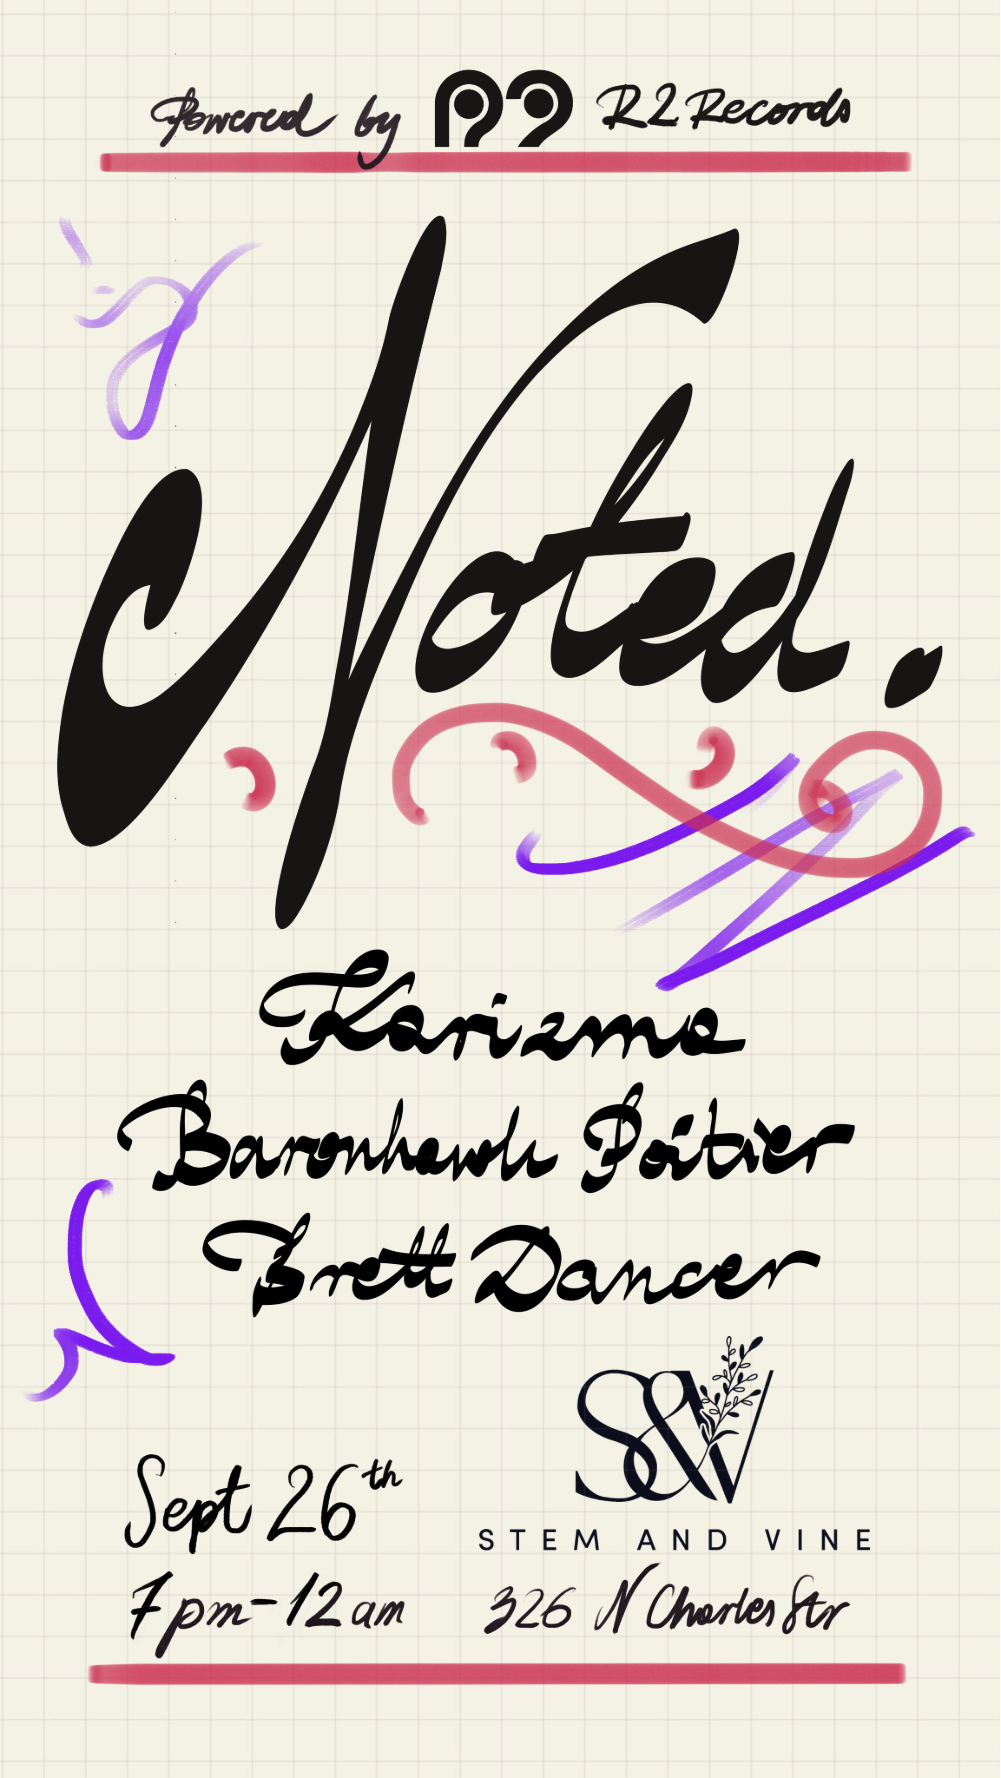 Powered by R2 R2 Records
Noted.
Karizma
Baronhawk Poitier
Brett Dancer
S&V
STEM AND VINE
Sept 26th
7pm-12am
326 N Charles Str